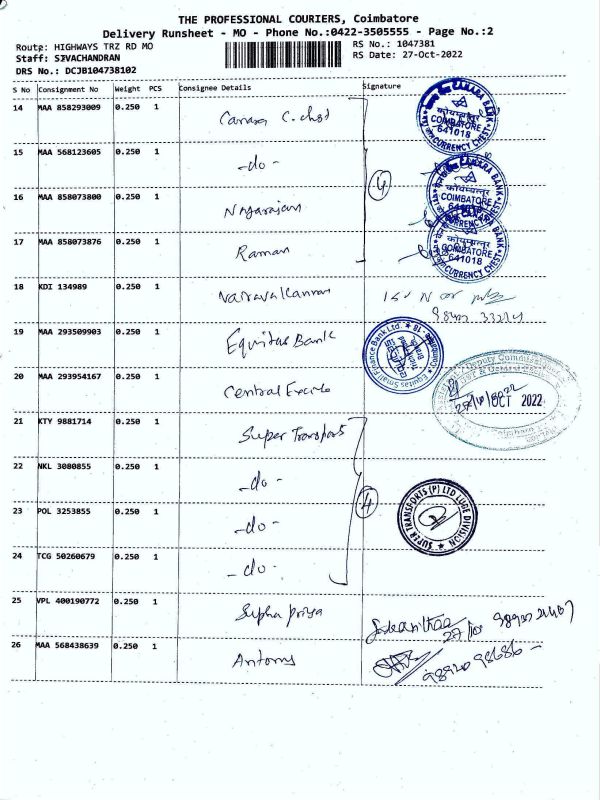 THE PROFESSIONAL COURIERS, Coimbatore
Delivery Runsheet - MO - Phone No.:0422-3505555 - Page No.:2
Route: HIGHWAYS TRZ RD MO
RS No.: 1047381
Staff: SIVACHANDRAN
RS Date: 27-Oct-2022
DRS No.: DCJB104738102
S No Consignment No Weight PCS Consignee Details Signature
14 MAA 858293009 0.250 1 Canara C. chest
CANARA BANK
कोयम्बत्तूर
COIMBATORE
641018
CURRENCY CHEST
15 MAA 568123605 0.250 1 -do-
4
CANARA BANK
कोयम्बत्तूर
COIMBATORE
641018
CURRENCY CHEST
16 MAA 858073800 0.250 1 Nagarajan
17 MAA 858073876 0.250 1 Raman
CANARA BANK
कोयम्बत्तूर
COIMBATORE
641018
CURRENCY CHEST
18 KDI 134989 0.250 1 Vairavakannan
19 MAA 293509903 0.250 1 Equitas Bank
Equitas Small Finance Bank Ltd. * Coimbatore - 18
20 MAA 293954167 0.250 1 Central Excise
Deputy Commissioner
OCT 2022
21 KTY 9881714 0.250 1 Super Transports
22 NKL 3080855 0.250 1 -do-
4
23 POL 3253855 0.250 1 -do-
SUPER TRANSPORTS (P) LTD LUGE DIVISION
24 TCG 50260679 0.250 1 -do-
25 VPL 400190772 0.250 1 Supha priya
27/10
26 MAA 568438639 0.250 1 Antony
98920 98686